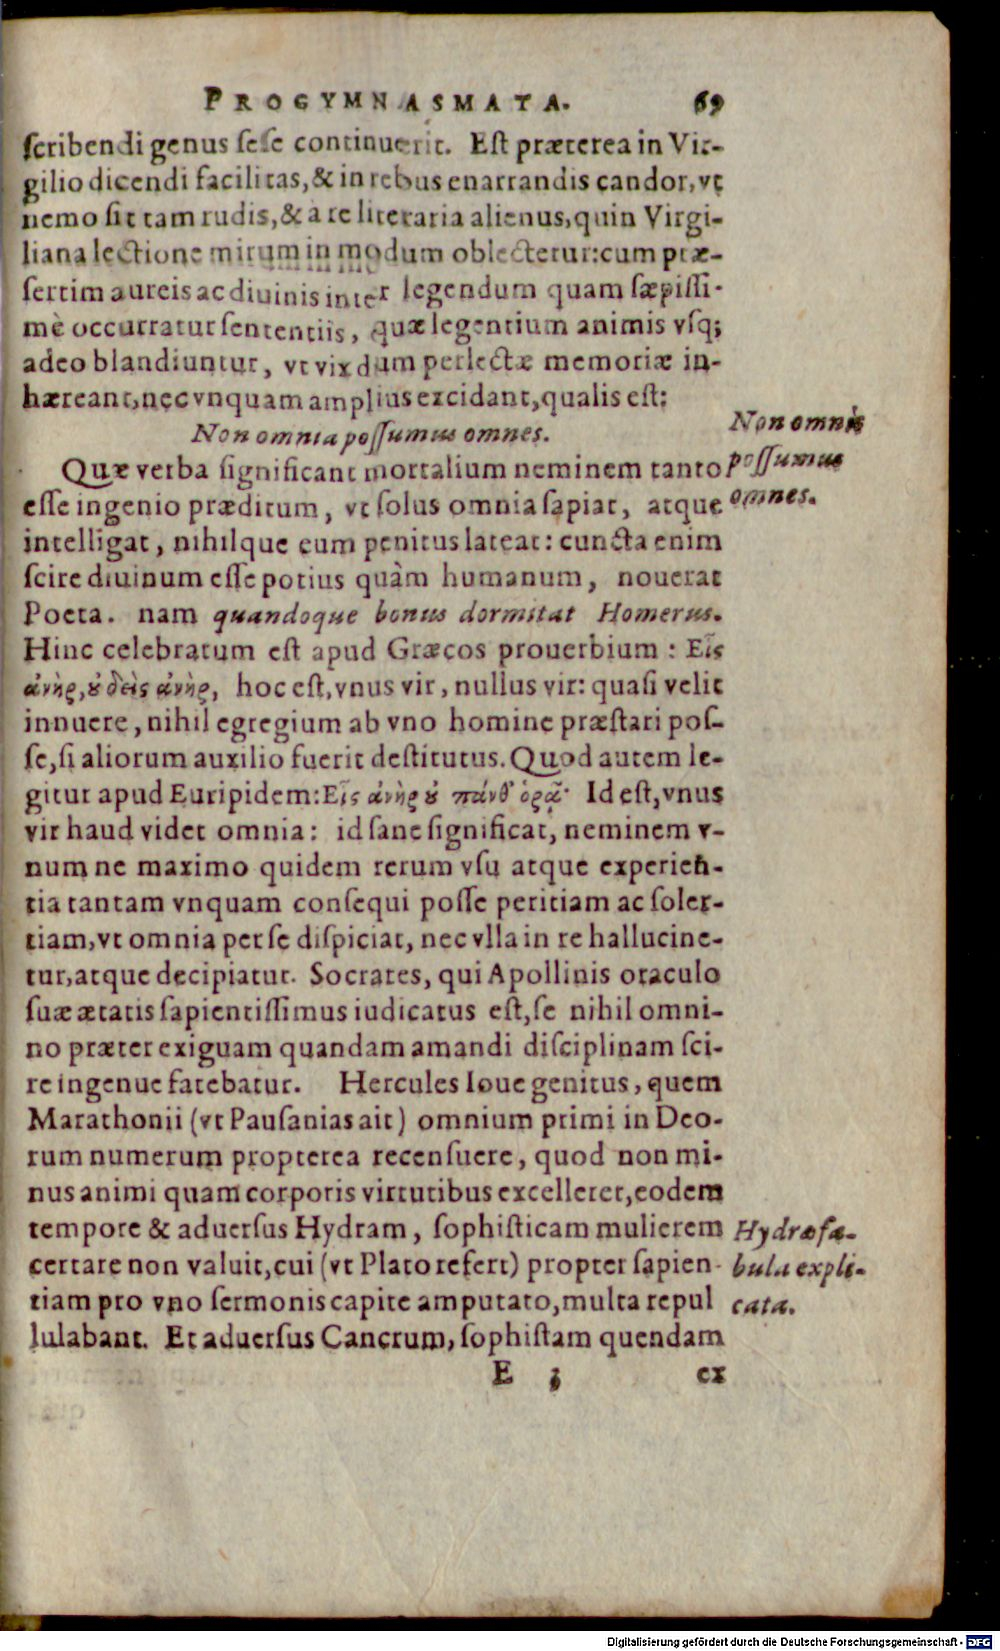 PROGYMNASMATA. 69
ſcribendi genus ſeſe continuerit. Eſt præterea in Vir-
gilio dicendi facilitas, & in rebus enarrandis candor, vt
nemo ſit tam rudis, & a re literaria alienus, quin Virgi-
liana lectione mirum in modum oblectetur: cum præ-
ſertim aureis ac diuinis inter legendum quam ſæpiſſi-
mè occurratur ſententiis, quæ legentium animis vſq;
adeo blandiuntur, vt vixdum perlectæ memoriæ in-
hæreant, nec vnquam amplius excidant, qualis eſt:
Non omnia poſſumus omnes.
Non omnia
poſſumus
omnes.
Quæ verba ſignificant mortalium neminem tanto
eſſe ingenio præditum, vt ſolus omnia ſapiat, atque
intelligat, nihilque eum penitus lateat: cuncta enim
ſcire diuinum eſſe potius quàm humanum, nouerat
Poeta. nam quandoque bonus dormitat Homerus.
Hinc celebratum eſt apud Græcos prouerbium: Εἷς
ἀνὴρ, ȣ̓δεὶς ἀνὴρ, hoc eſt, vnus vir, nullus vir: quaſi velit
innuere, nihil egregium ab vno homine præſtari poſ-
ſe, ſi aliorum auxilio fuerit deſtitutus. Quod autem le-
gitur apud Euripidem: Εἷς ἀνὴρ ȣ̓ πάνθ' ὁρᾷ· Id eſt, vnus
vir haud videt omnia: id ſane ſignificat, neminem v-
num ne maximo quidem rerum vſu atque experien-
tia tantam vnquam conſequi poſſe peritiam ac ſoler-
tiam, vt omnia per ſe diſpiciat, nec vlla in re hallucine-
tur, atque decipiatur. Socrates, qui Apollinis oraculo
ſuæ ætatis ſapientiſſimus iudicatus eſt, ſe nihil omni-
no præter exiguam quandam amandi diſciplinam ſci-
re ingenue fatebatur. Hercules Ioue genitus, quem
Marathonii (vt Pauſanias ait) omnium primi in Deo-
rum numerum propterea recenſuere, quod non mi-
nus animi quam corporis virtutibus excelleret, eodem
tempore & aduerſus Hydram, ſophiſticam mulierem
certare non valuit, cui (vt Plato refert) propter ſapien-
tiam pro vno ſermonis capite amputato, multa repul
lulabant. Et aduerſus Cancrum, ſophiſtam quendam
Hydræ fa-
bula expli-
cata.
E 3 ex
Digitalisierung gefördert durch die Deutsche Forschungsgemeinschaft - DFG